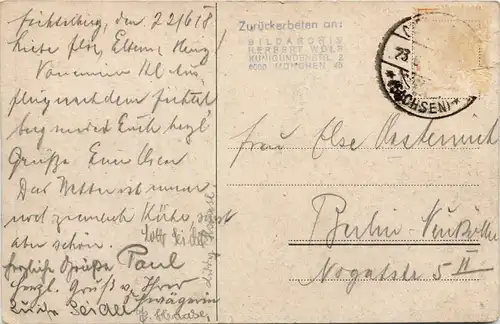 Fichtelberg, den 22/6 18.
Liebe Else, Eltern u. Henz!
Von einem kl. Aus-
flug nach dem Fichtel-
berg sendet Euch herzl.
Grüße Eure
Das Wetter ist immer
noch ziemlich kühl, sonst
aber schön.
herzliche Grüße Paul
Herzl. Gruß v. Ihrer
Schwägerin
Seidel
Zurückerbeten an:
BILDARCHIV
HERBERT WOLF
KUNIGUNDENSTR. 2
8000 MÜNCHEN 40
23
*(SACHSEN)*
Frau Else Oesterreich
Berlin-Neukölln
Nogatstr 5 II